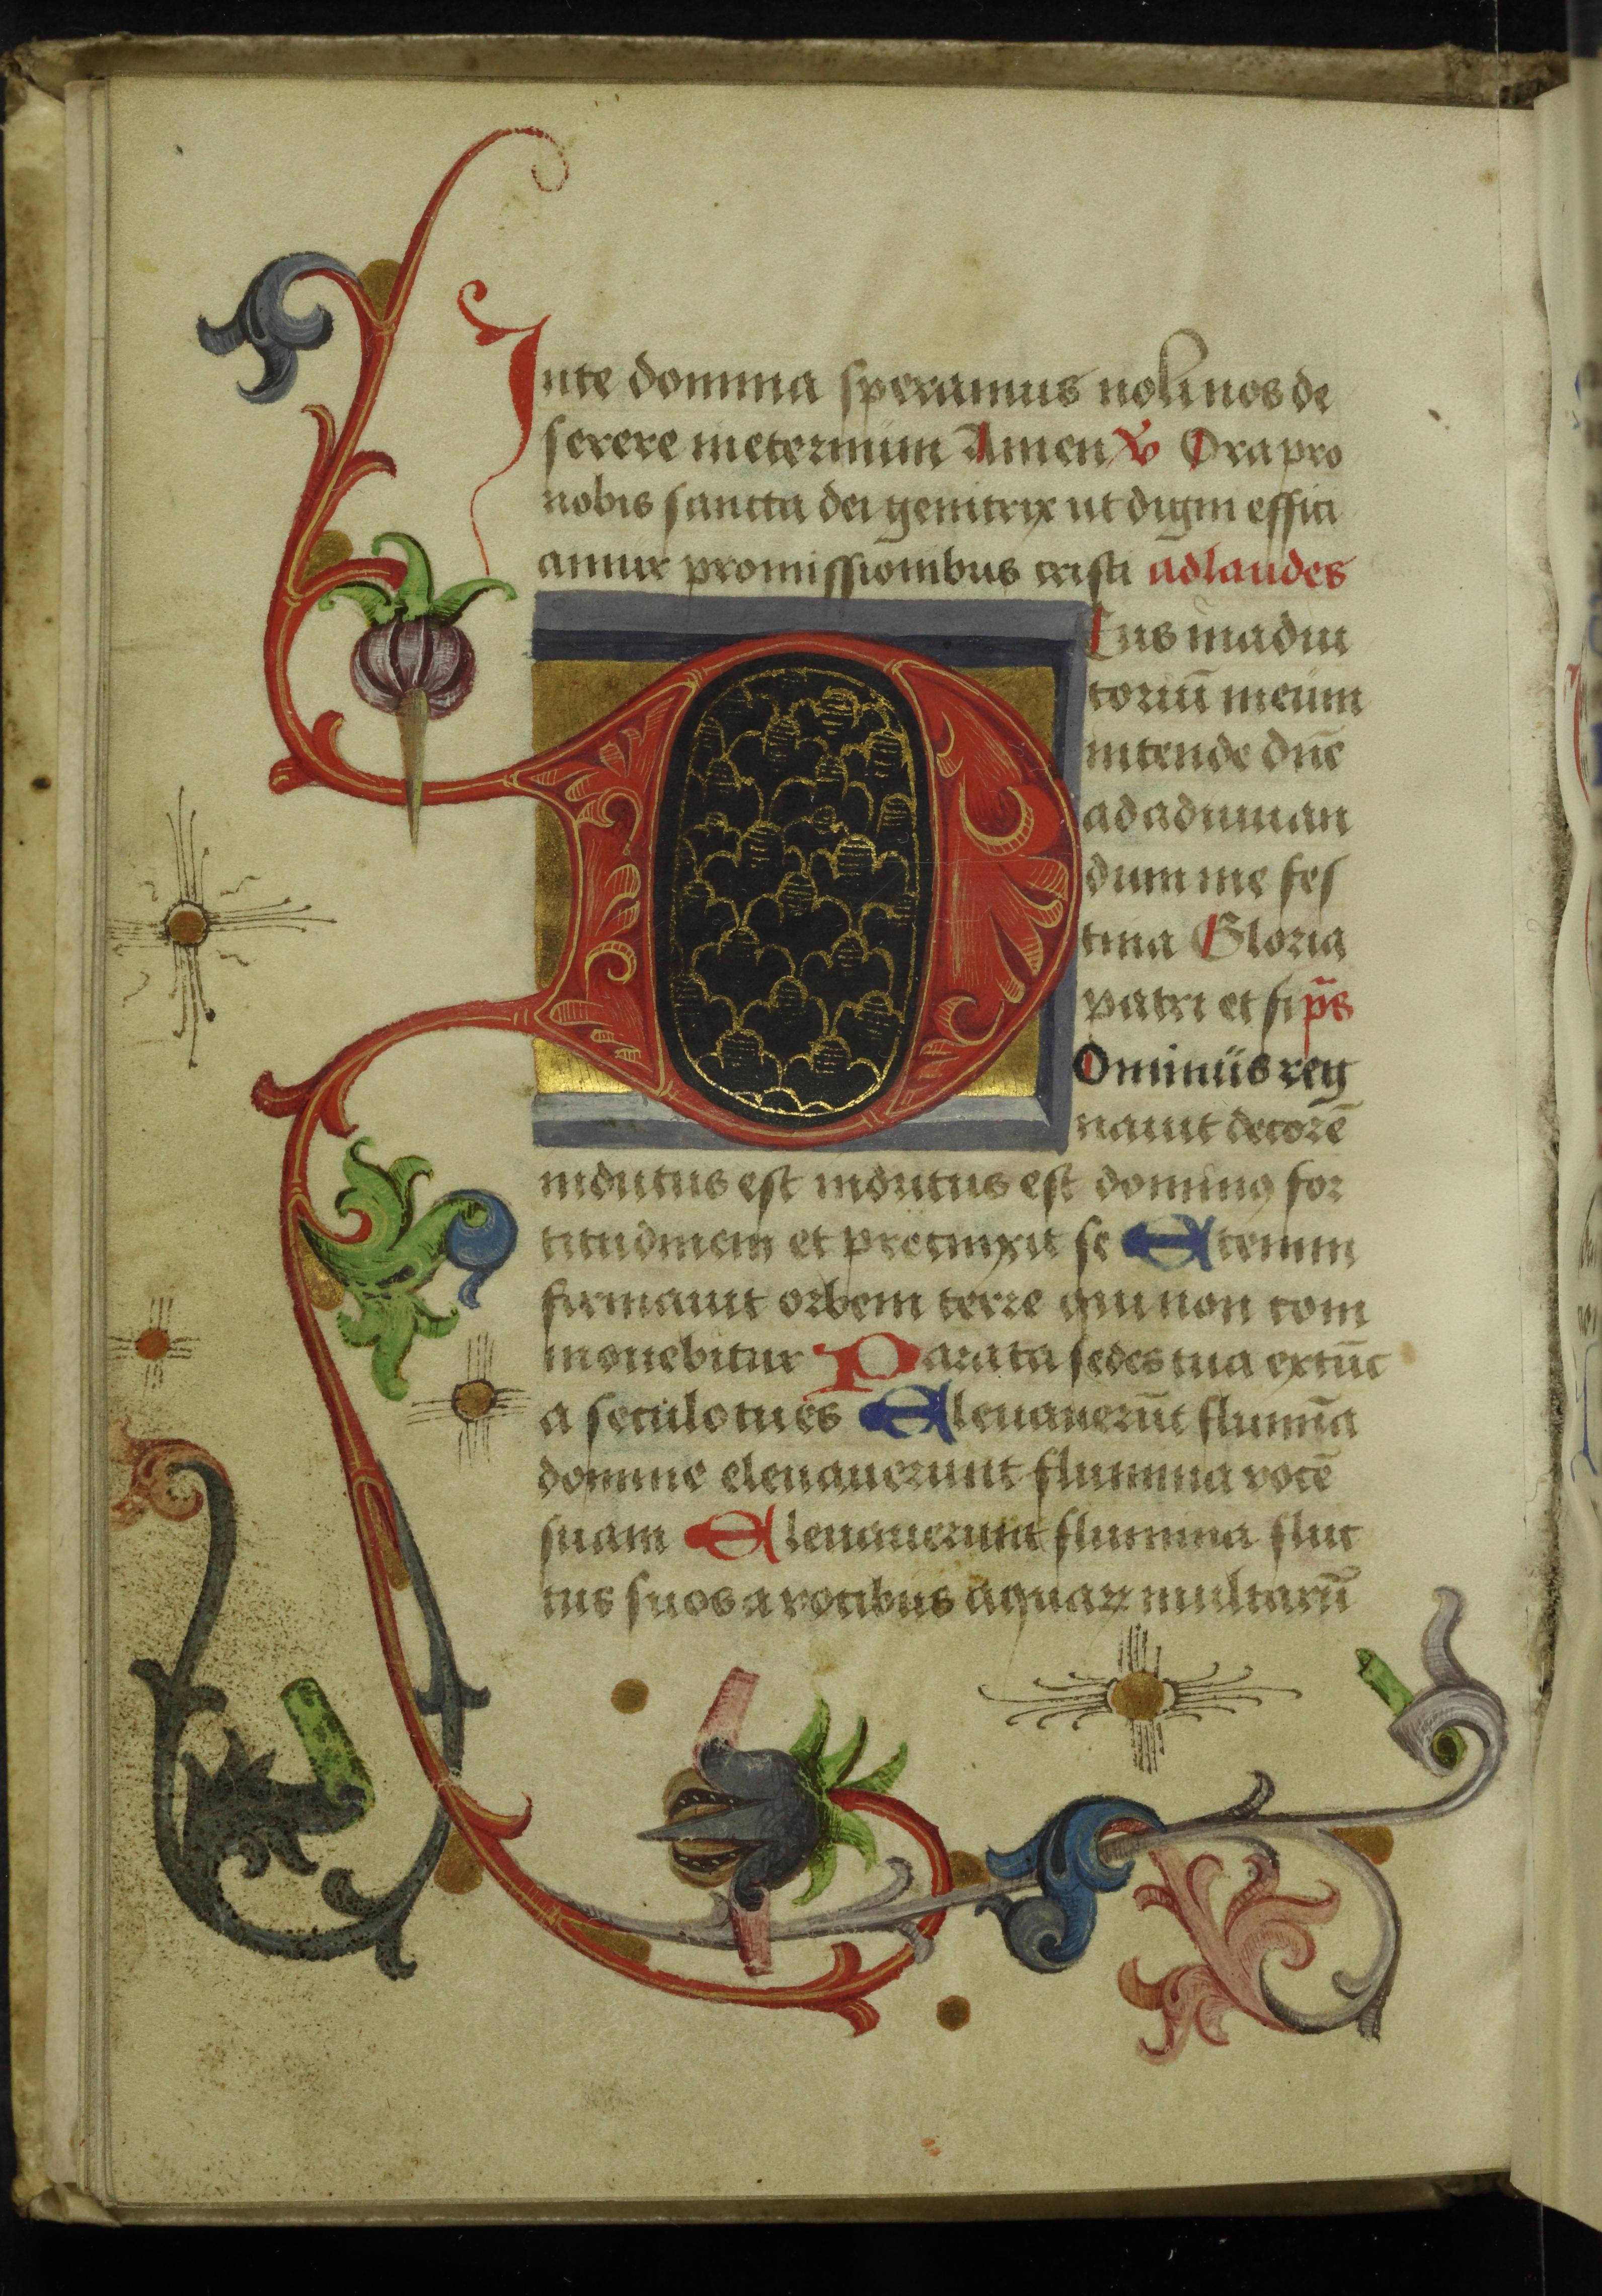 Inte domina speramus noli nos de
serere ineternum Amen ℣ Ora pro
nobis sancta dei genitrix ut digni effici
amur promissionibus cristi ad laudes
DEus inadiu
toriū meum
intende dn̄e
ad adiuuan
dum me fes
tina Gloria
patri et fi p̄s
Ominus reg
nauit decorē
indutus est indutus est dominꝯ for
titudinem et precinxit se Etenim
firmauit orbem terre qui non com
mouebitur Parata sedes tua extūc
a seculo tu es Eleuauerūt flumīa
domine eleuauerunt flumina vocē
suam Eleuauerunt flumina fluc
tus suos a vocibus aquaꝝ multarū